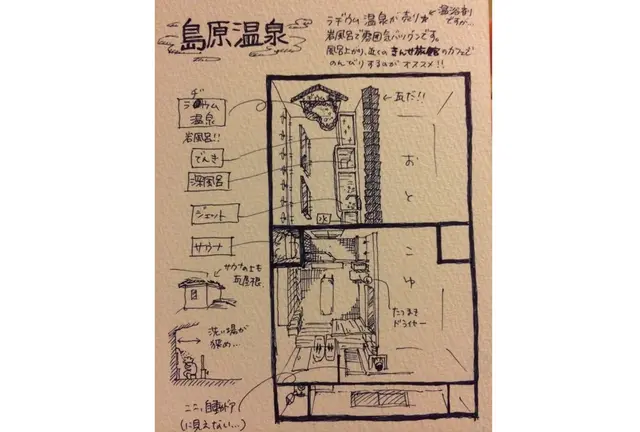 島原温泉
ラヂウム温泉が売り
←温浴剤
ですが…
岩風呂で雰囲気バツグンです。
風呂上がり、近くのきんせ旅館のカフェで
のんびりするのがオススメ!!
ヂ
ラウム
温泉
岩風呂!!
でんき
深風呂
ジェット
サウナ
サウナの上も
瓦屋根
洗い場が
狭め…
ここ、自動ドア
(に見えない…)
←瓦だ!!
おとこゆ
水
たつまき
ドライヤー